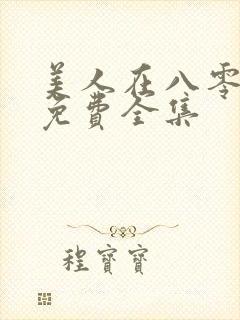 美人在八零
免費全集
程寶寶